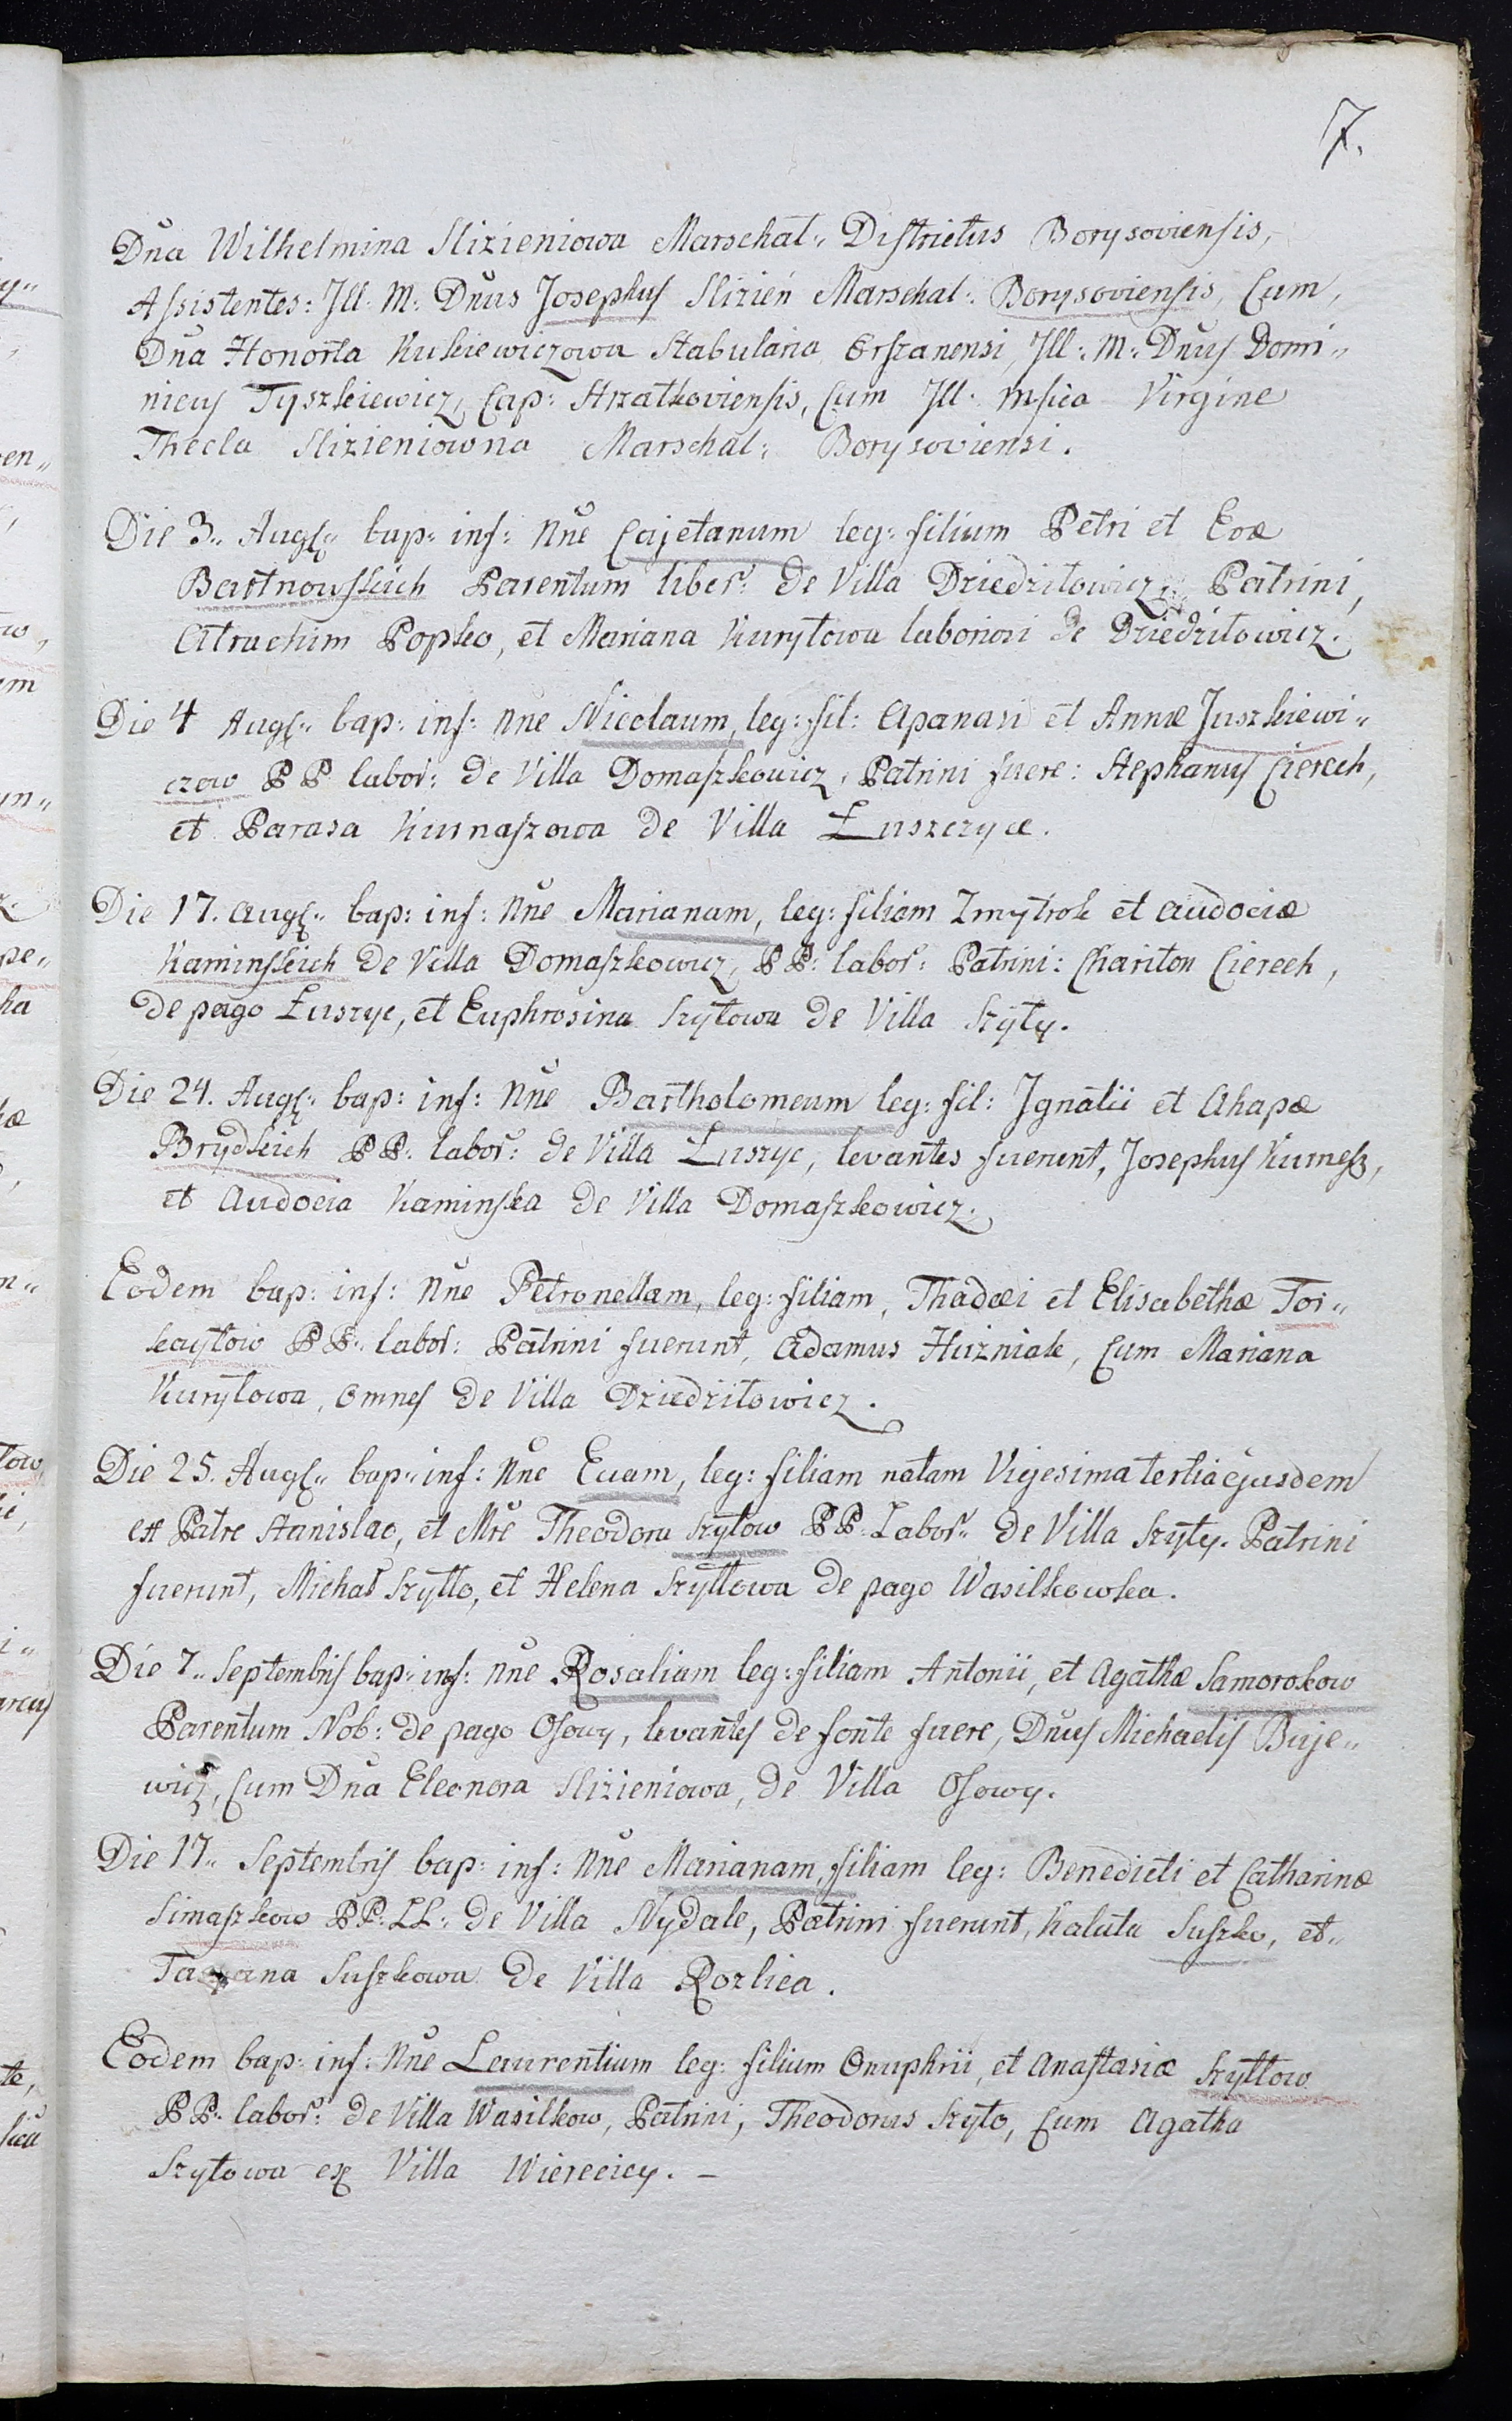 7.
Dña Wilhelmina Slizieniowa Marschal: Districtus Borysoviensis,
Assistentes: Ill: M: Dñus Josephus Slizień Marschal: Borysoviensis, Cum,
Dña Honorta Kukiewiczowa Stabularia Orszanensi, Ill: M: Dñus Domi„
nicus Tyszkiewicz, Cap: Strzałkoviensis, Cum Ill: Mfica Virgine
Thecla Slizieniowna Marschal: Borysoviensi.
Die 3„ Augs„ bap: inf: Nñe Cajetanum leg: filium Petri et Evæ
Bartnowskich Parentum liber: de Villa Dziedziłowicz, Patrini,
Atrachim Popko, et Mariana Kuryłowa laboriosi de Dziedziłowicz.
Die 4 Augs„ bap: inf: Nne Nicolaum, leg: fil: Apanasi et Annæ Juszkiewi„
czow PP labor: de Villa Domaszkowicz, Patrini fuere: Stephanus Cierech,
et Parasa Kurnaszowa de Villa Łuszczyce.
Die 17. Augs„ bap: inf: Nñe Marianam, leg: filiam Zmytrok et Audociæ
Kaminskich de Villa Domaszkowicz, PP: labor: Patrini: Chariton Cierech,
de pago Łuszyc, et Euphrosina Szyłowa de Villa Szyły.
Die 24. Augs„ bap: inf: Nñe Bartholomeum leg: fil: Ignatii et Ahapæ
Brydkich PP: labor: de Villa Łuszyc, levantes fuerunt, Josephus Kurnesz,
et Audocia Kaminska de Villa Domaszkowicz.
Eodem bap: inf: Nñe Petronellam, leg: filiam, Thadæi et Elisabethæ Tor„
kayłow PP: labor: Patrini fuerunt, Adamus Huzniak, Cum Mariana
Kuryłowa, Omnes de Villa Dziedziłowicz.
Die 25. Augs„ bap„ inf: Nñe Evam, leg: filiam natam Vigesima tertia ejusdem
ex Patre Stanislao, et Mrê Theodora Szyłow PP: Labor„ de Villa Szyły. Patrini
fuerunt, Michał Szyłło, et Helena Szyłłowa de pago Wasilkowka.
Die 7„ Septembris bap„ inf: Nñe Rosaliam leg: filiam Antonii, et Agathæ Samorokow
Parentum Nob: de pago Osowy, levantes de fonte fuere, Dñus Michaelis Buje„
wicz, Cum Dña Eleonora Slizieniowa, de Villa Osowy.
Die 17„ Septembris bap: inf: Nñe Marianam, filiam leg: Benedicti et Catharinæ
Simaszkow PP: LL: de Villa Nydale, Patrini fuerunt, Kaluta Suszko, et„
Taciana Suszkowa de Villa Rozlica.
Eodem bap: inf: Nñe Laurentium leg: filium Onuphrii, et Anastasiæ Szyłłow
PP: labor: de Villa Wasilkow, Patrini, Theodorus Szyło, Cum Agatha
Szyłowa ex Villa Wierecicy. –